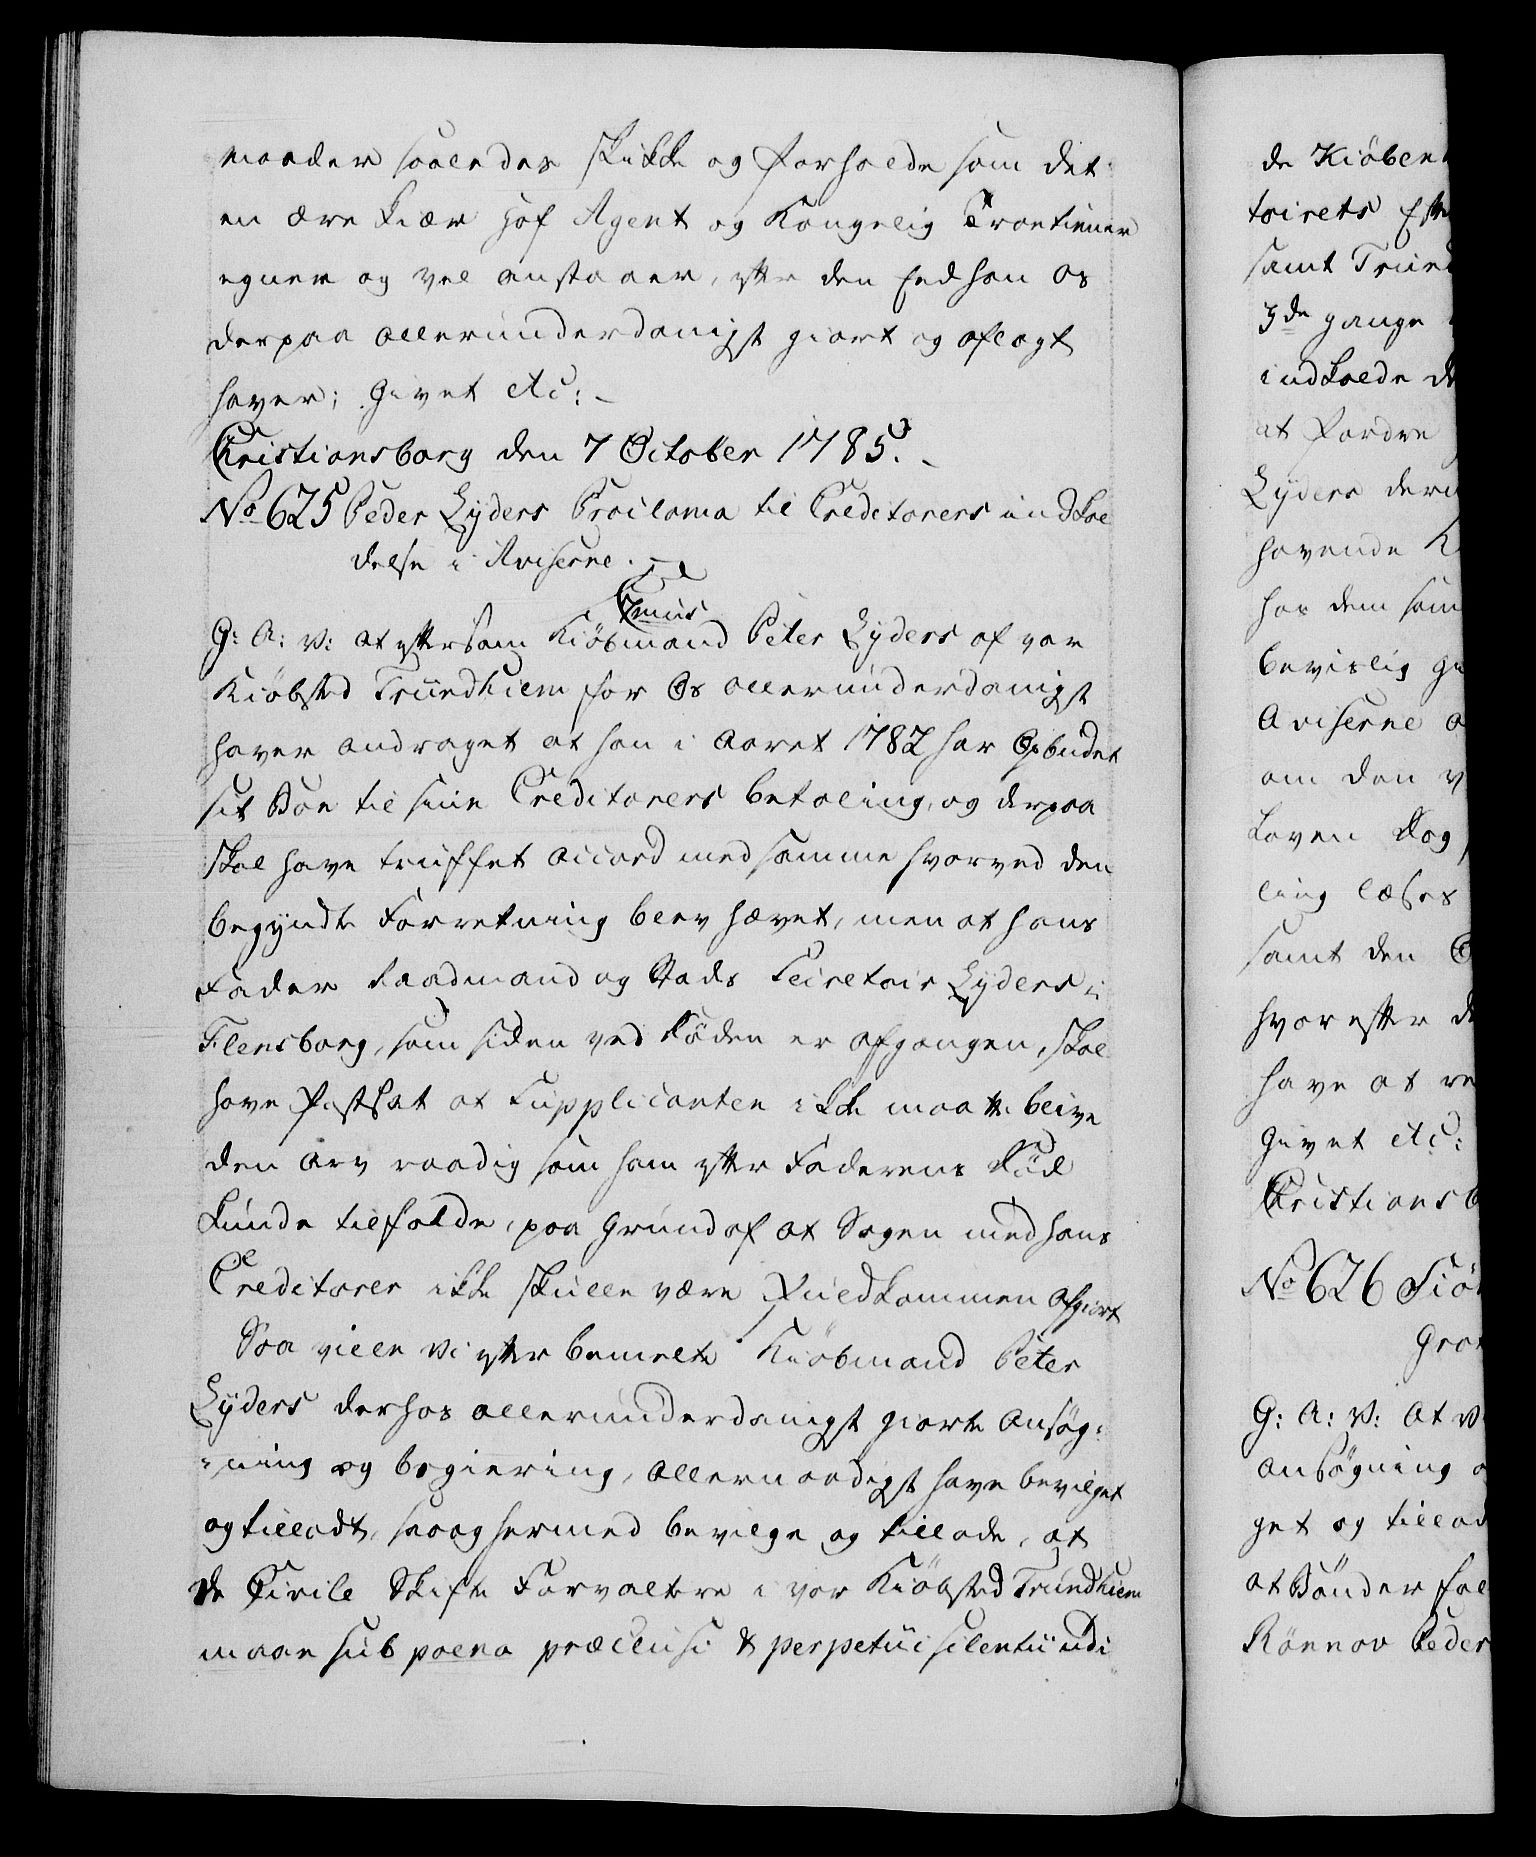 maader saaledes skikke og forholde som det
en ære kiær Hof Agent og Kongelig Tractieur
egner og vel anstaaer, efter den Eed han os
derpaa allerunderdanigst giort og aflagt
haver; Givet etc: -
Christiansborg den 7 October 1785. -
No 625 Peder Lyders Proclama til Creditorers indkal
delse i Aviserne. -
G: A: V: at eftersom Kiöbmand Peter Lyders af vor
Kiöbsted Trundhiem for Os allerunderdanigst
haver andraget at han i Aaret 1782 har Opbudet
sit Boe til sine Creditorers betaling, og derpaa
skal have truffet accord med samme hvorved den
begyndte Forretning blev hævet, men at hans
Fader Raadmand og Stads Secretair Lyders i
Flensborg, som siden ved Döden er afgangen, skal
have fastsat at Supplicanten ikke maatte blive
den Arv raadig som ham efter Faderens Död
kunde tilfalde, paa Grund af at Sagen med hans
Creditorer ikke skulle være fuldkommen afgiort
Saa ville Vi efter bemelte Kiöbmand Peter
Lyders derhos allerunderdanigst giorte Ansög:
:ning og begiering, allernaadigst have bevilget
og tilladt, saa og hermed bevilge og tillade, at
de Civile Skifte Forvaltere i vor Kiöbsted Trundhiem
maae sub poena præclusi & perpetui silentii udi
de Kiöben
toirets Eft
samt Trun
3de gange
indkalde d
at fordre
Lyders der
havende K
hos dem som
bevislig g
Aviserne o
om den v
Loven Dog
ling læses
samt den O
hvorefter d
have at re
Givet etc:
Christiansb
No 626 Siö
Gro
G: A: V: At V
Ansögning o
get og tillad
at Bönder fol
Rönnov Peder